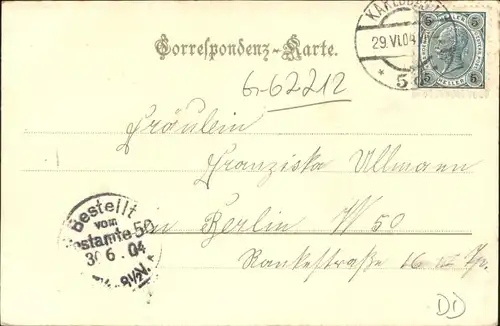 Correspondenz-Karte.
29.VI.04
5
5
HELLER
6-62212
Fräulein
Franziska Ullmann
in Berlin W 50
Rankestraße 16
Bestellt
vom
Postamte 50
30 6. 04